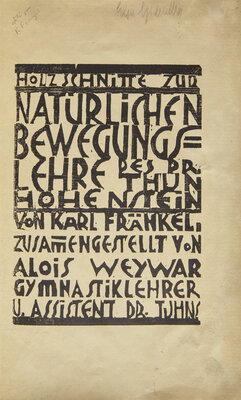 HOLZSCHNITTE ZUR
NATÜRLICHEN
BEWEGUNGS=
LEHRE DES DR.
THUN
HOHENSTEIN
VON KARL FRÄNKEL,
ZUSAMENGESTELLT VON
ALOIS WEYWAR
GYMNASTIKLEHRER
U. ASSISTENT DR. THUNS